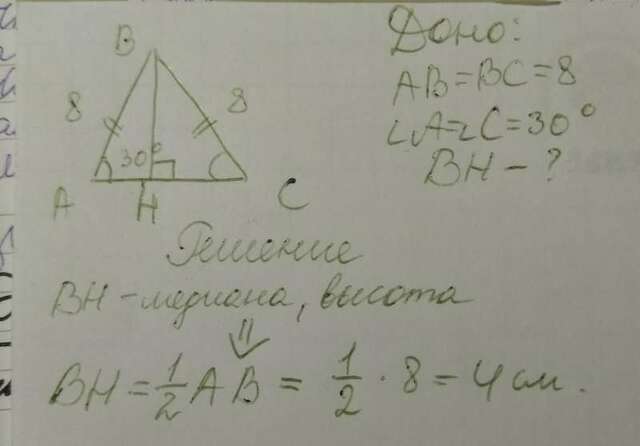 B
8 8
30°
A H C
Дано:
AB=BC=8
∠A=∠C=30°
BH-?
Решение
BH-медиана, высота
⇓
BH = 1/2 AB = 1/2 · 8 = 4 см.